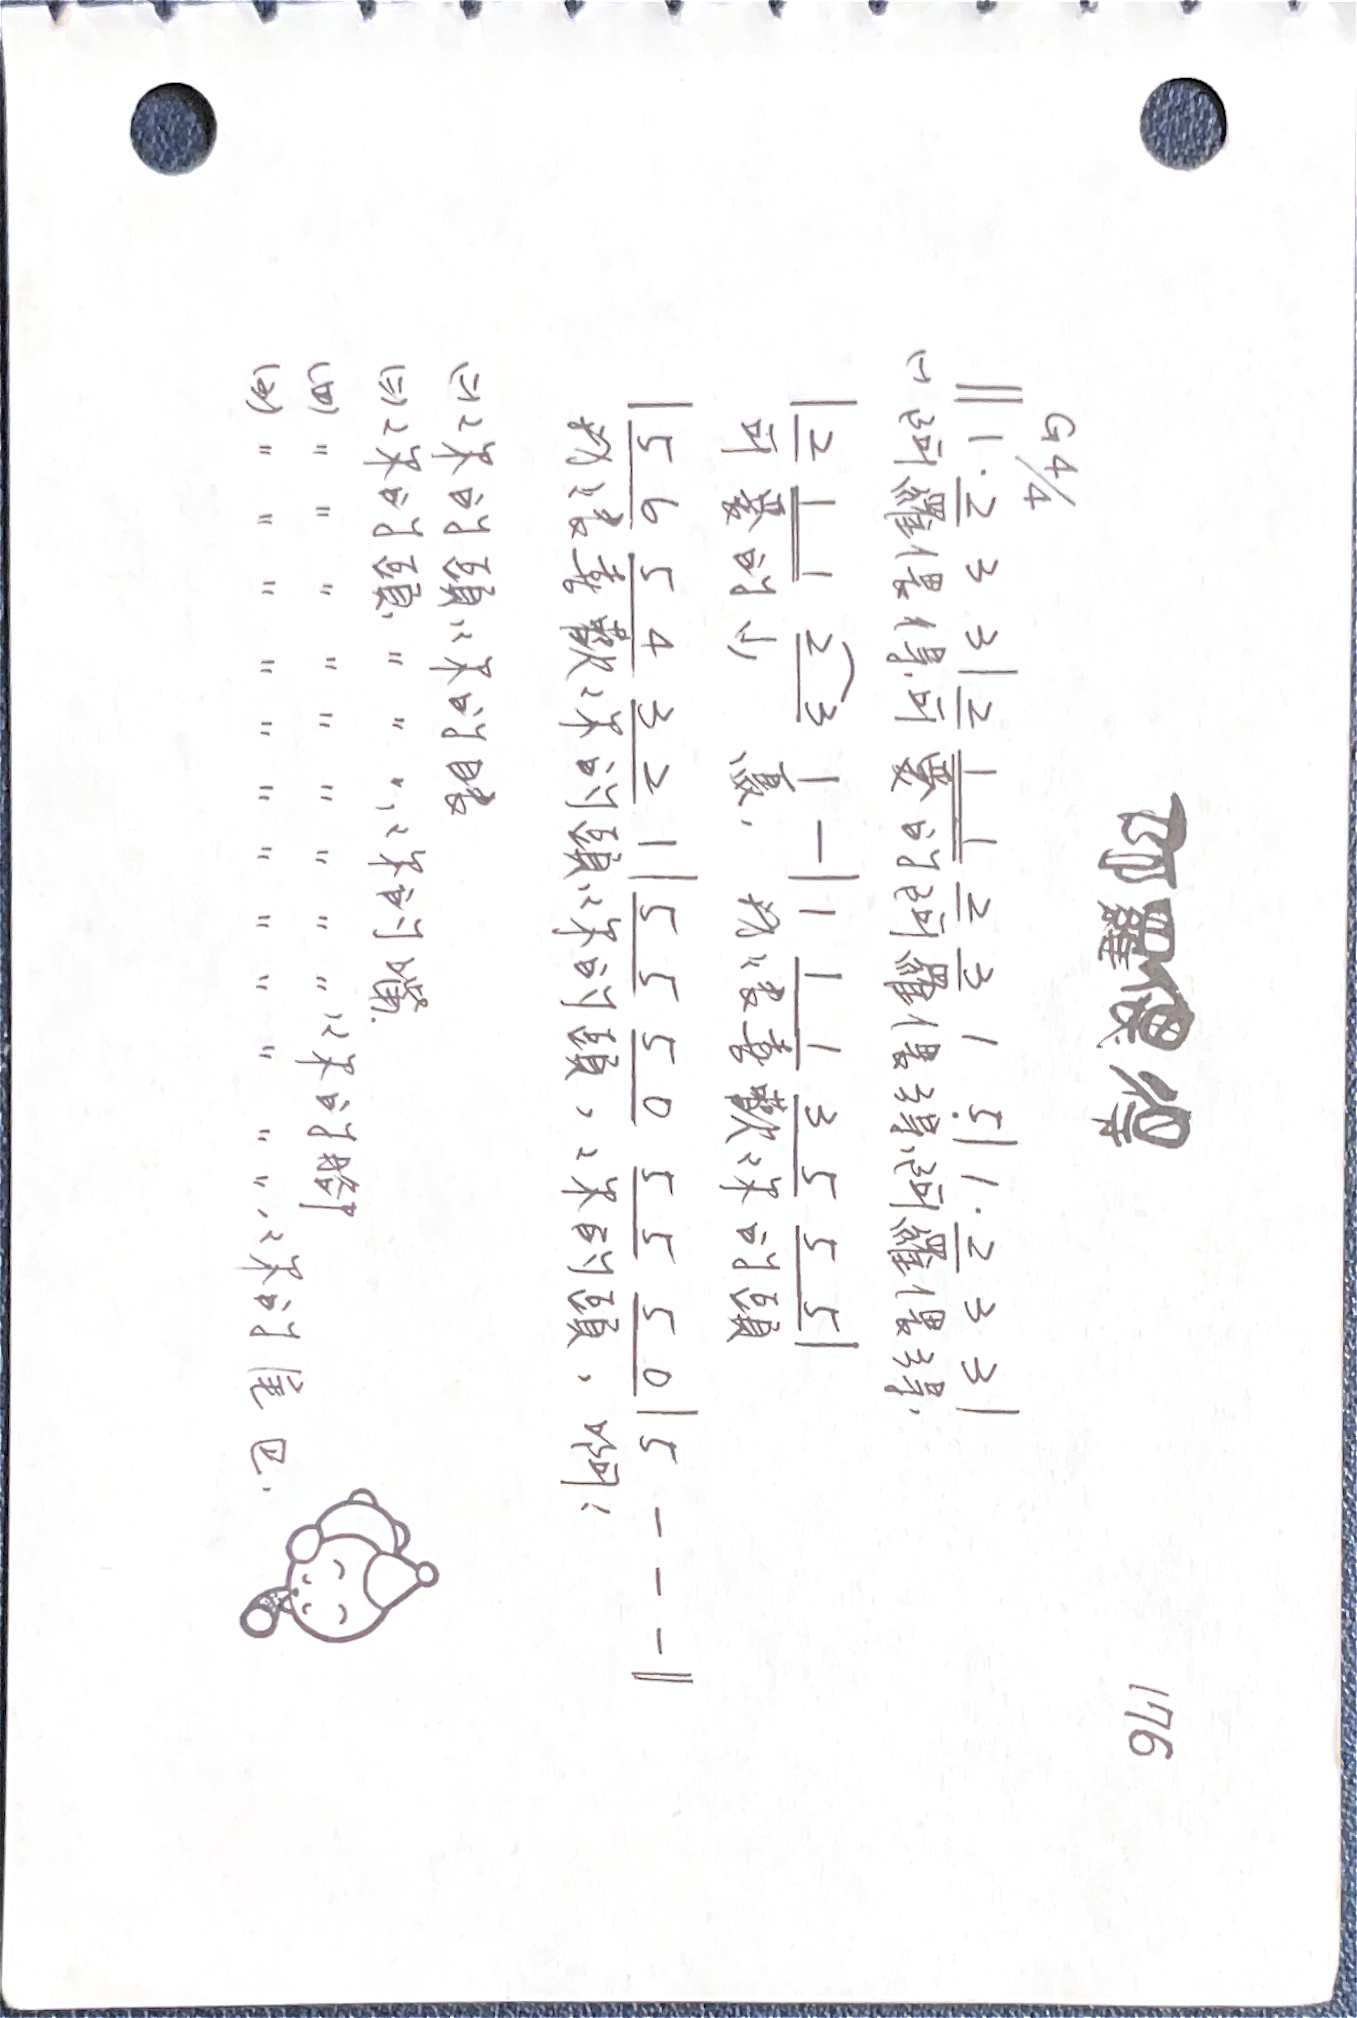 阿羅偎得
176
G 4/4
‖ 1 · 2 3 3 | 2 1 1 2 3 1 5̣ | 1 · 2 3 3 |
㈠ 阿羅偎得,可愛的阿羅偎得,阿羅偎得,
| 2 1 1 2 3 1 — | 1 1 1 3 5 5 5 |
可愛的小鳥, 我很喜歡你的頭
| 5 6 5 4 3 2 1 | 5 5 5 0 5 5 5 0 | 5 - - - ‖
我很喜歡你的頭,你的頭,你的頭,啊!
㈡你的頭,你的眼
㈢你的頭, 〃 〃 〃,你的嘴.
(四) 〃 〃 〃 〃 〃 〃 〃 〃 〃,你的腳
(五) 〃 〃 〃 〃 〃 〃 〃 〃 〃 〃 〃 〃,你的尾巴.